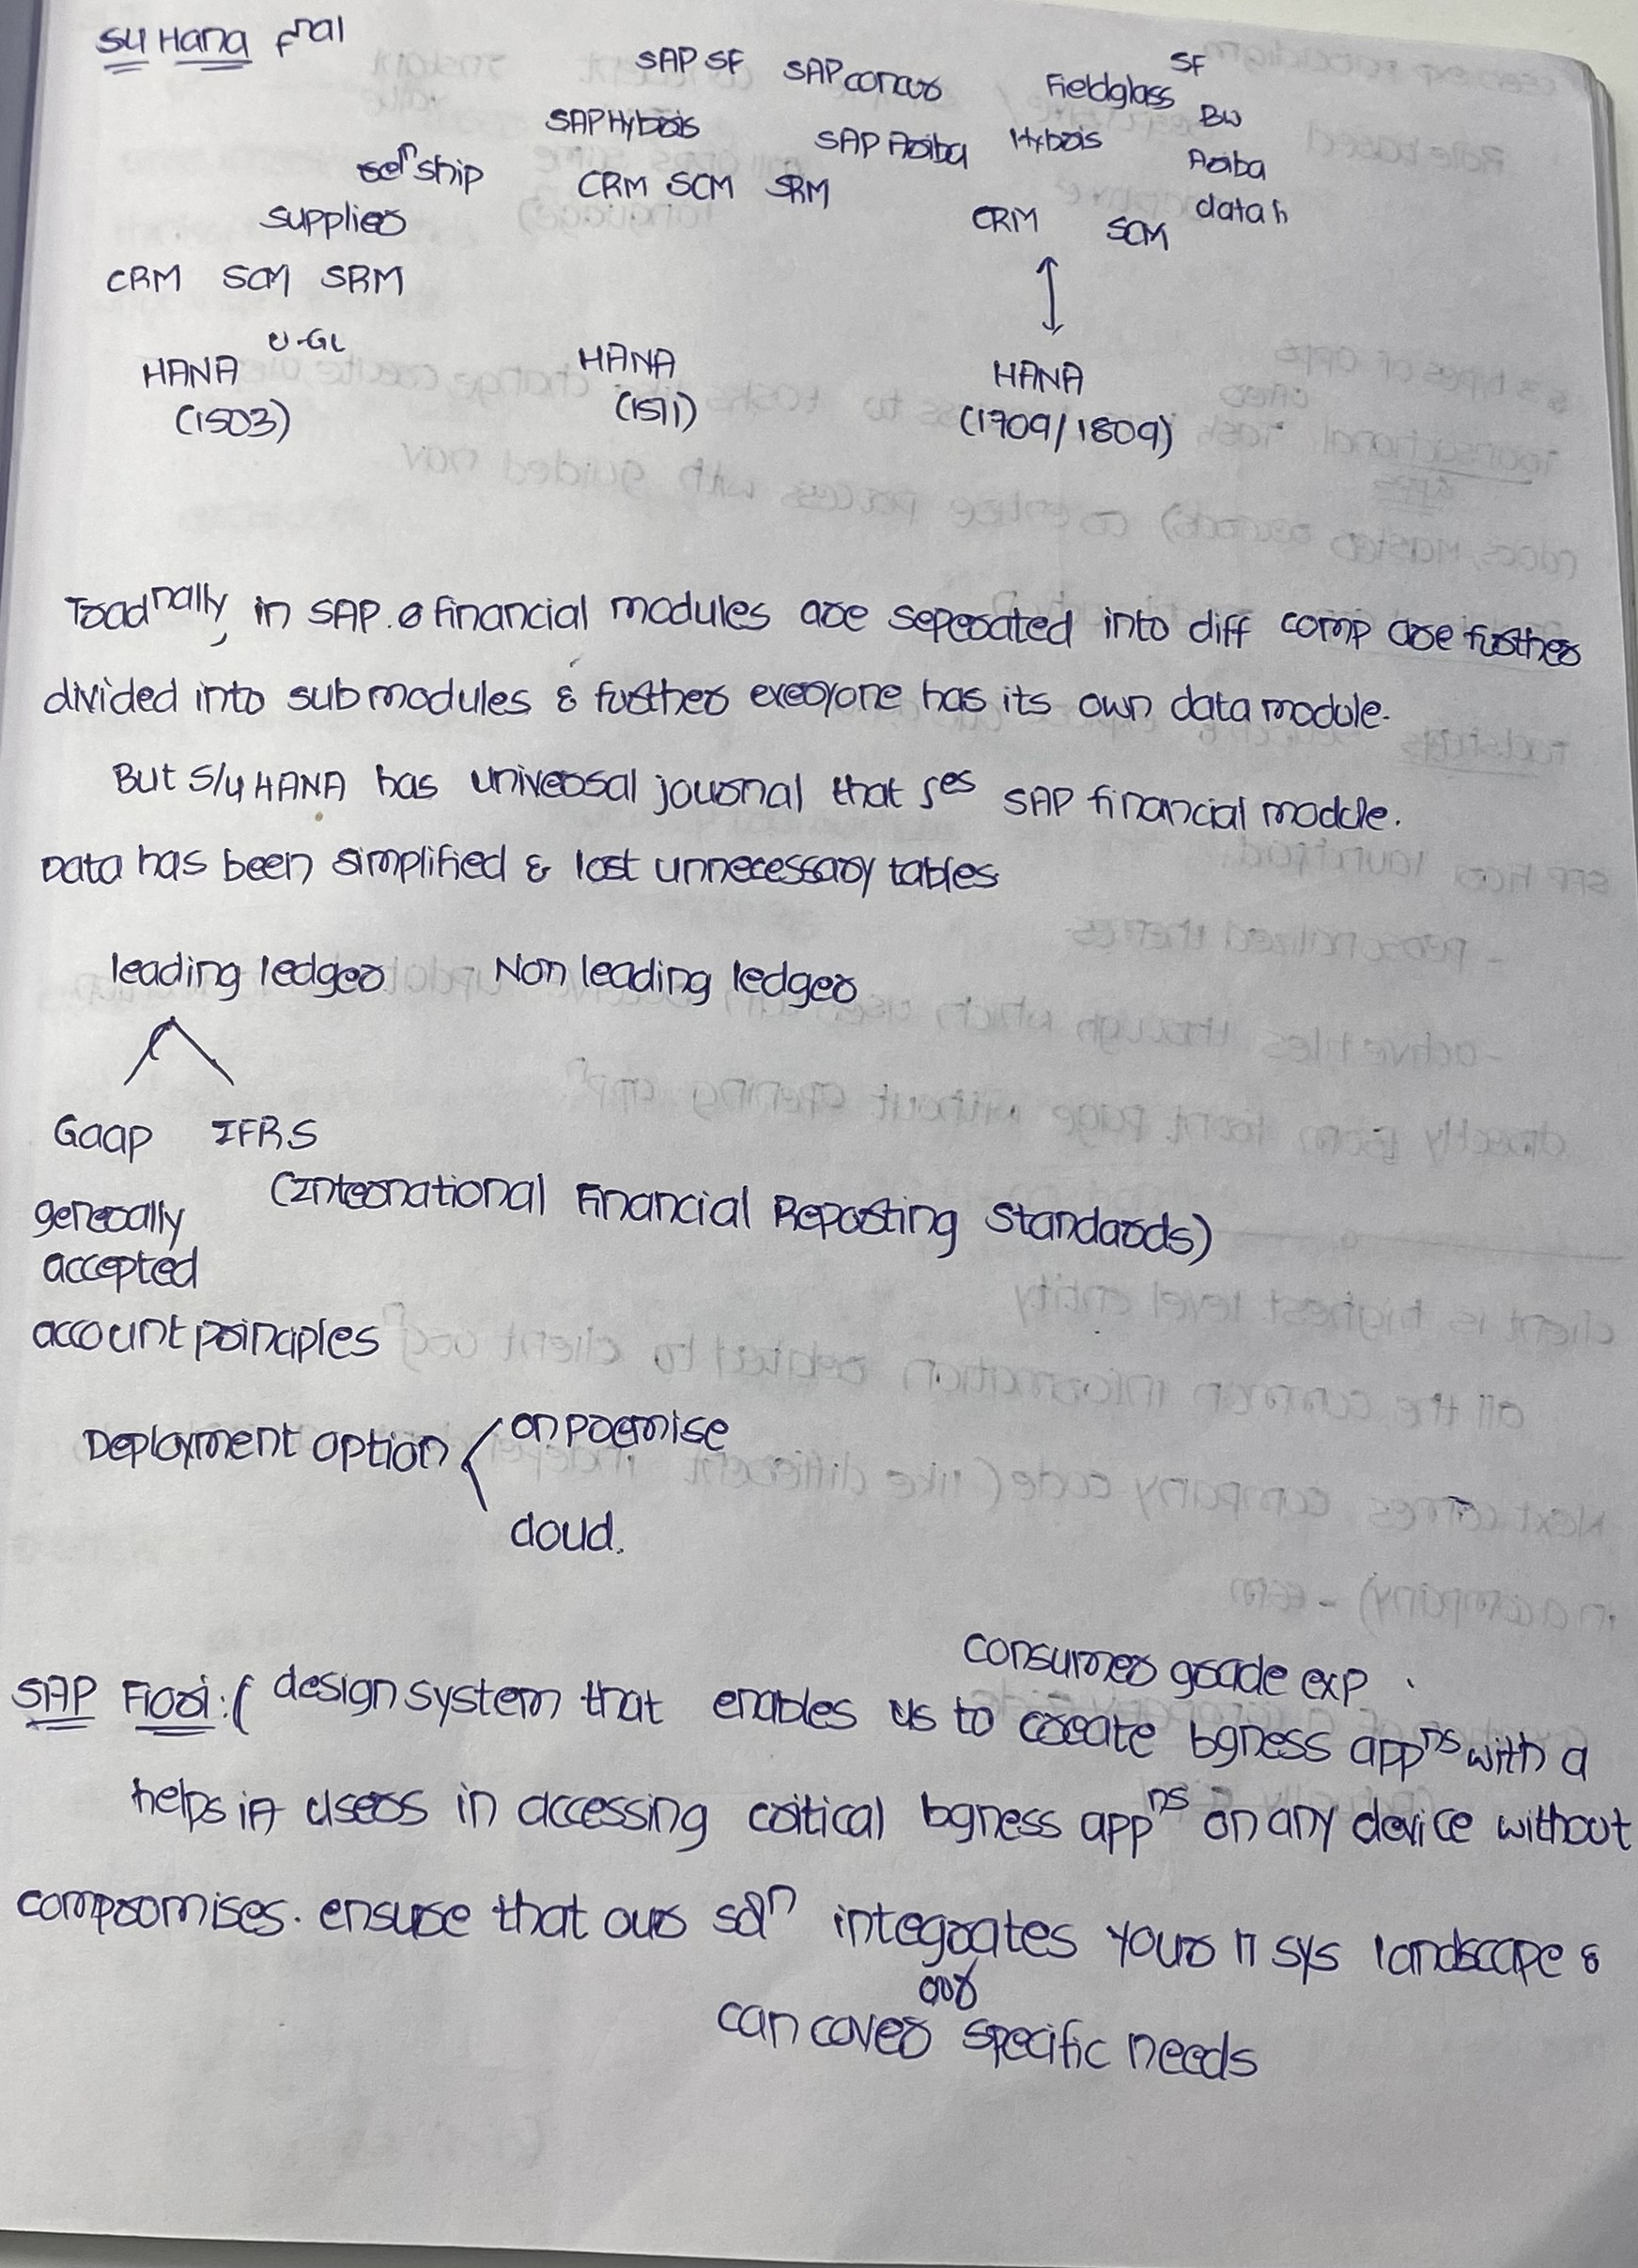 S4 Hana fnal
SAP SF SAP Concur Fieldglass SF
SAP Hybris SAP Ariba Hybris BW
reln ship CRM SCM SRM Ariba
supplier CRM SCM data h
CRM SCM SRM
U-GL
HANA HANA HANA
(1503) (1511) (1709/1809)
Tradnally, in SAP. financial modules are seperated into diff comp are further
divided into sub modules & further everyone has its own data module.
But S/4 HANA has universal journal that ses SAP financial module.
Data has been simplified & lost unnecessary tables
leading ledger Non leading ledger
Gaap IFRS
(International Financial Reporting Standards)
generally
accepted
account principles
Deployment option on premise
cloud.
consumer grade exp.
SAP Fiori: ( design system that enables us to create bgness appns with a
helps in users in accessing critical bgness appns on any device without
compromises. ensure that our soln integrates your IT sys landscape &
our
can cover specific needs